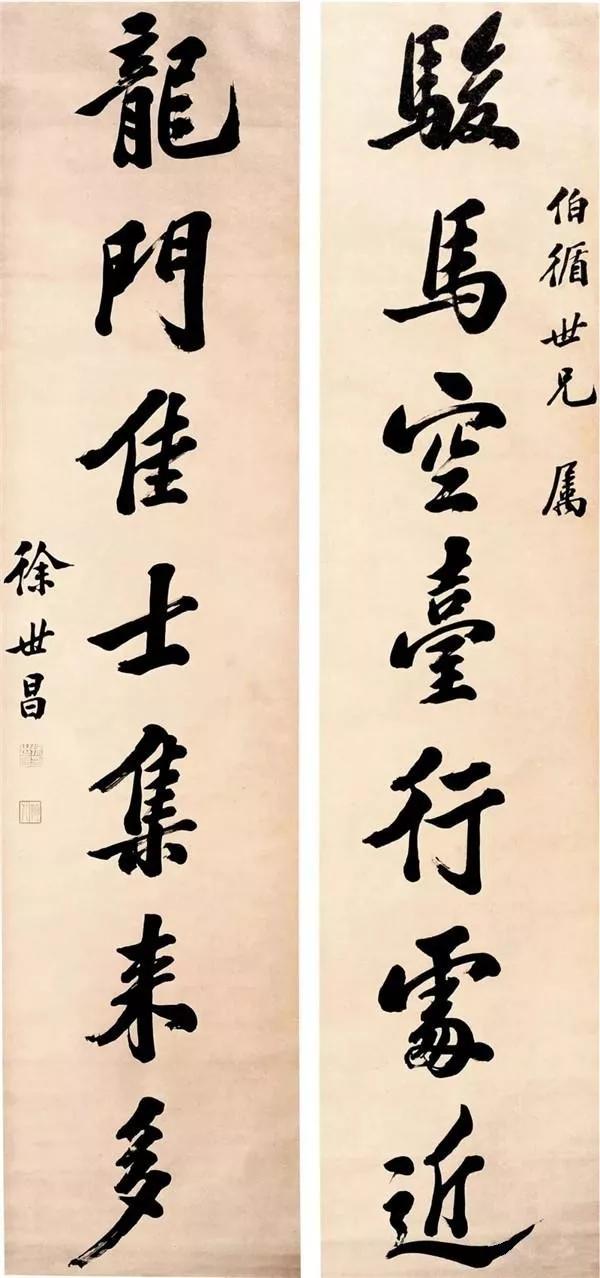 伯循世兄 属
駿馬空臺行處近
龍門佳士集来多
徐世昌